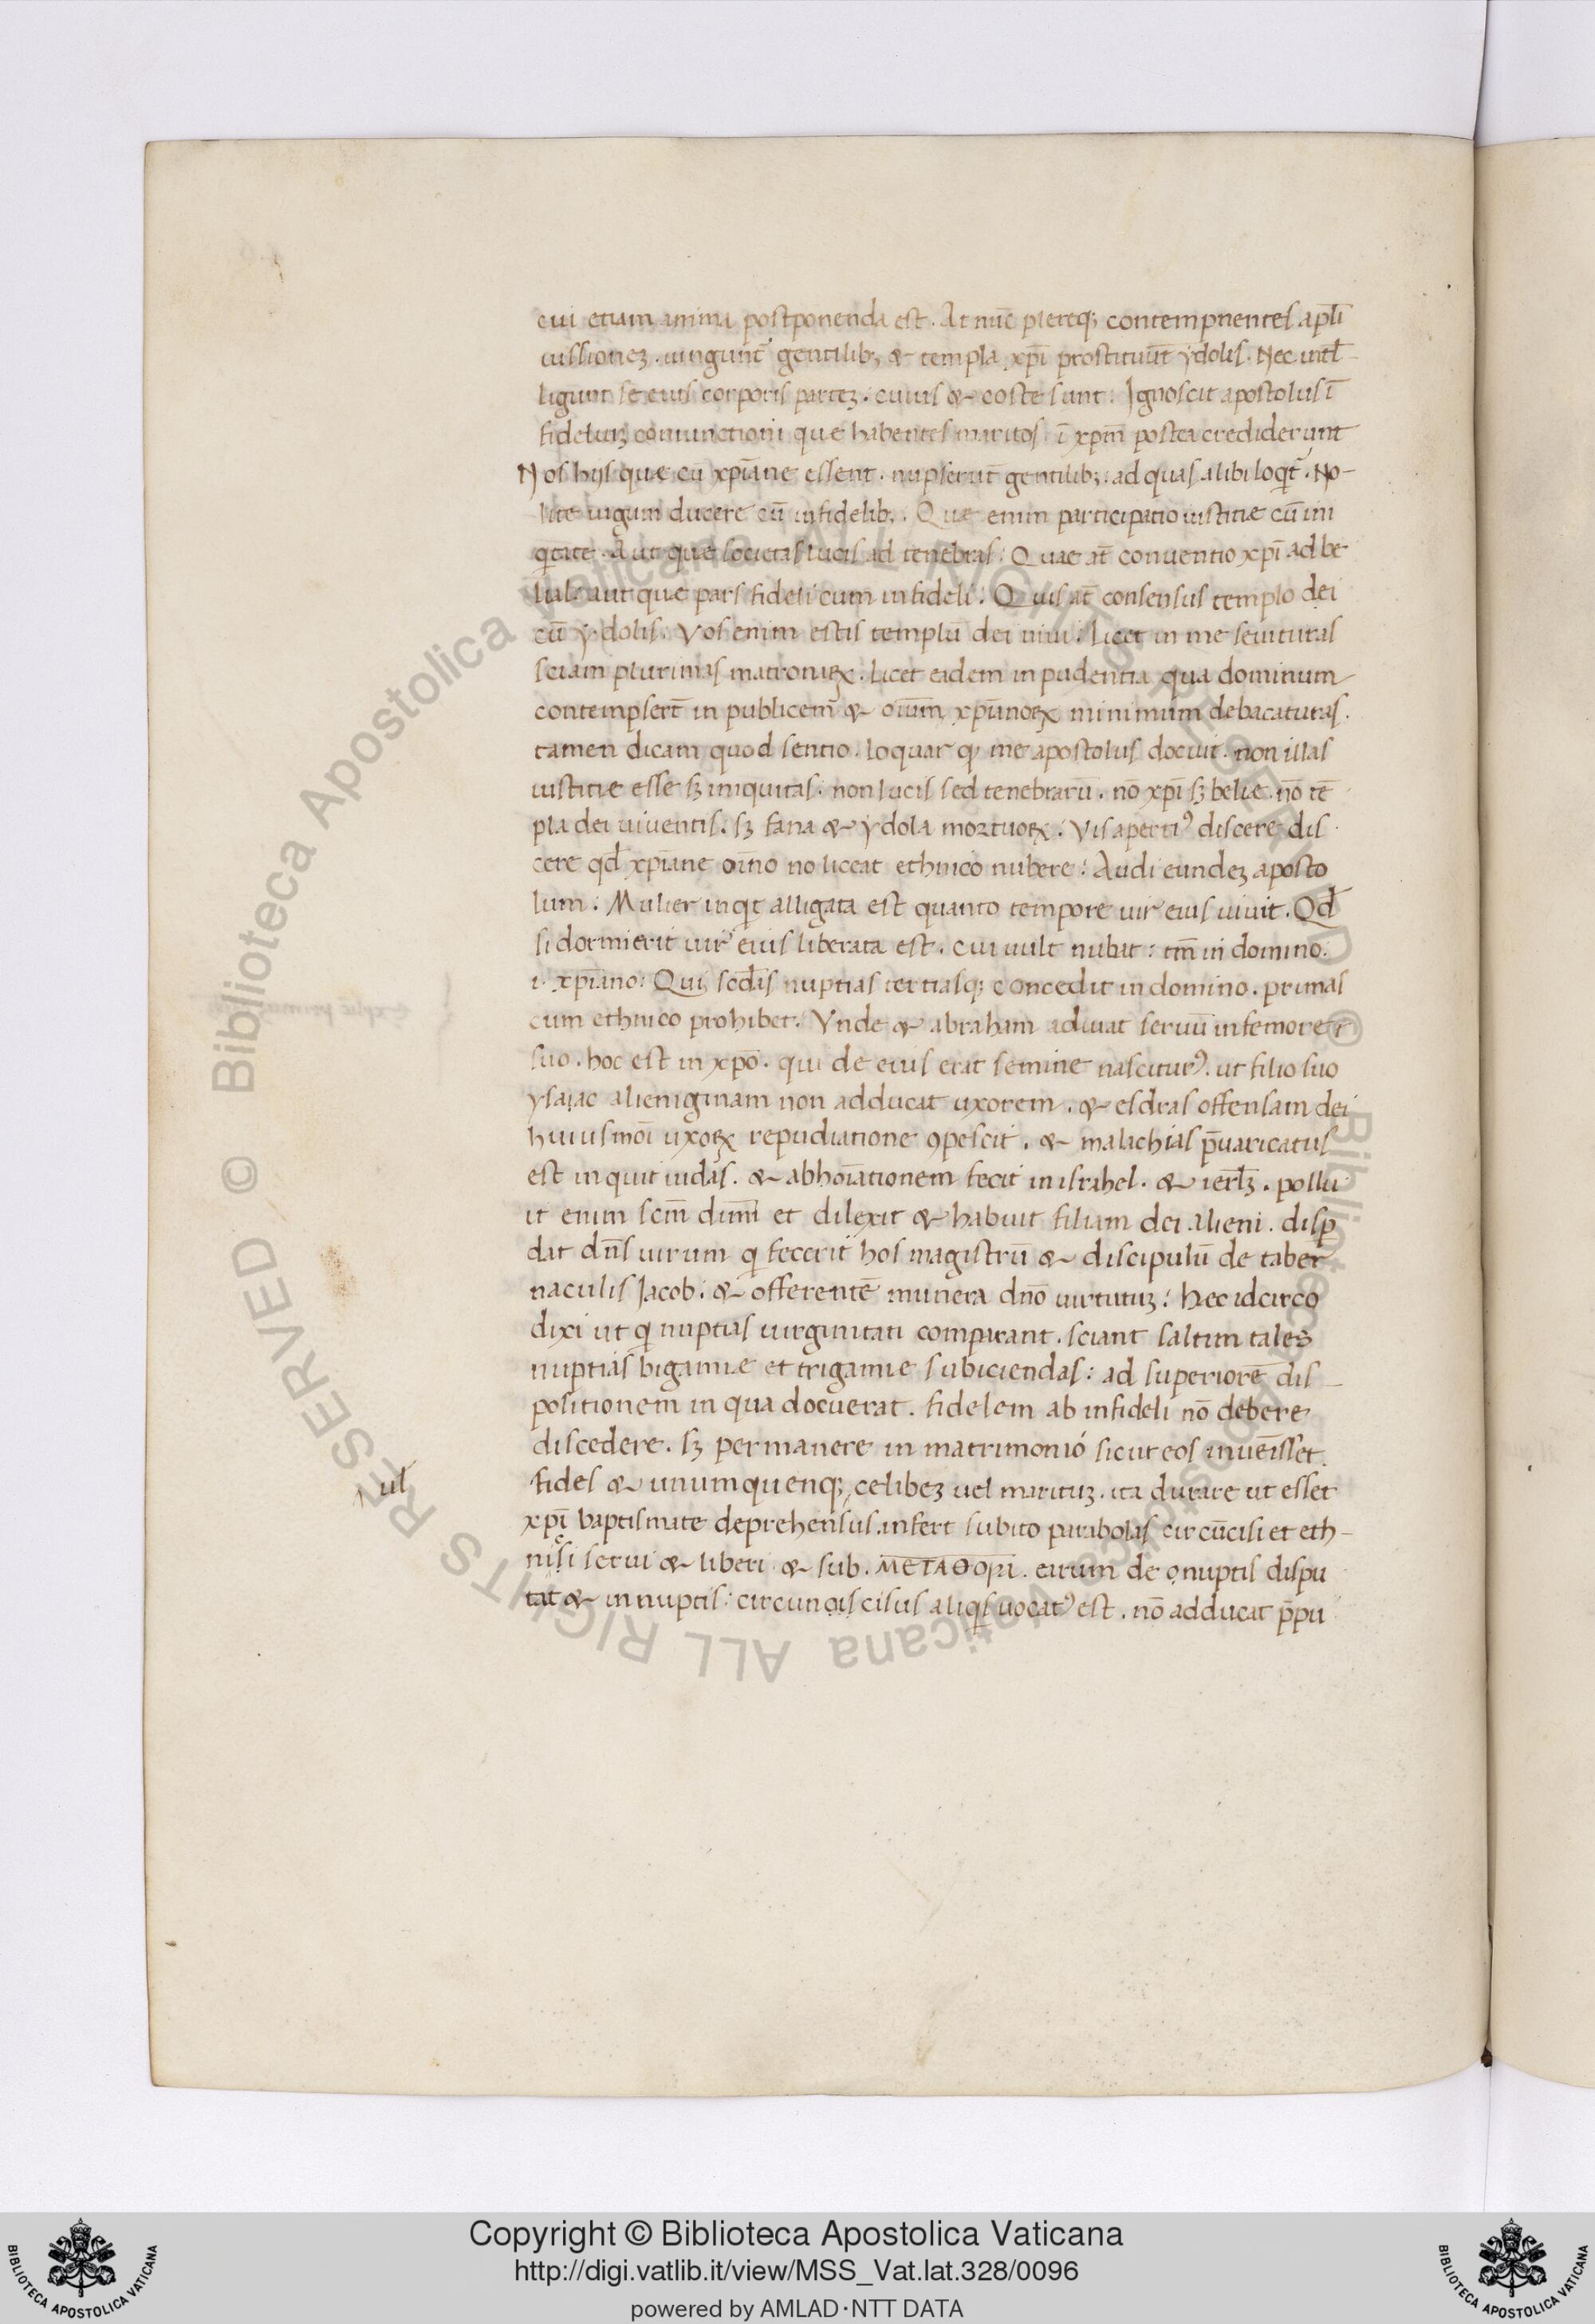 cui etiam anima postponenda est. At nūc pleręq; contempnentes apl̄i
iussionez. iungunt̃ gentilib; & templa xp̄i prostituūt ydolis. Nec intł
ligunt se eius corporis partez. cuius & coste sunt. Ignoscit apostolus ī
fidelium coniunctioni que habentes maritos. ī xp̄m postea crediderunt
Nos hijs que cū xp̄iane essent. nupserūt gentilib;. ad quas alibi loqt̃. No-
lite iugum ducere cū infidelib;. Que enim participatio iustitie cū ini
qtate. Aut que societas lucis ad tenebras. Quae at̄ conuentio xp̄i ad be
lial. aut que pars fideli cum infideli. Quis at̄ consensus templo dei
cū ydolis. Vos enim estis templū dei uiui. Licet in me seuituras
sciam plurimas matronaꝝ. licet eidem inpudentia qua dominum
contempsert̄ in publicem̄ & oium̄ xp̄ianoꝝ minimum debacaturas.
tamen dicam quod sentio. loquar q; me apostolus docuit. non illas
iustitie esse sꝫ iniquitas. non lucis sed tenebrarū. nō xp̄i sꝫ belie. nō tē
pla dei uiuentis. sꝫ fana & ydola mortuoꝝ. Vis aperti⁹ discere dis
cere qd̄ xp̄iane oīno no liceat ethnico nubere. Audi eundez aposto
lum. Mulier inqt alligata est quanto tempore uir eius uiuit. Qd̄
si dormierit uir eius liberata est. cui uult nubat. tm̄ in domino.
i. xp̄iano. Qui scd̄as nuptias tertiasq; concedit in domino. primas
cum ethnico prohibet. Vnde & abraham adiuat seruū in femore ī
suo. hoc est in xp̄o. qui de eius erat semine nascitur⁹. ut filio suo
ysaiac alieniginam non adducat uxorem. & esdras offensam dei
huiusmōi uxoꝝ repudiatione ꝯpescit. & malachias p̄uaricatus
est inquit iudas. & abhoīationem fecit in israhel. & ierłꝫ. pollu
it enim scm̄ dūm et dilexit & habuit filiam dei alieni. disp̄
dat dn̄s uirum q fecerit hos magistrū & discipulū de taber
naculis Jacob. & offerentē munera dn̄o uirtutuꝫ. Hec idcirco
dixi ut q nuptias uirginitati comparant. sciant saltim tales
nuptias bigamie et trigamie subiciendas. ad superiorē dis-
positionem in qua docuerat. fidelem ab infideli nō debere
discedere. sꝫ permanere in matrimonio sicut eos inuēisset.
fides & unumquenq; celibeꝫ uel marituꝫ. ita durare ut esset
uł
xp̄i baptismate deprehensus. infert subito parabolas circūcisi et eth-
nisi serui & liberi & sub. ΜΕΤΑΘΟΡΙ. earum de onuptis dispu
tat & innuptis. circuncis cisus aliqs uocat⁹ est. nō adducat p̄pu
Copyright © Biblioteca Apostolica Vaticana
http://digi.vatlib.it/view/MSS_Vat.lat.328/0096
powered by AMLAD·NTT DATA
BIBLIOTECA APOSTOLICA VATICANA
BIBLIOTECA APOSTOLICA VATICANA
© Biblioteca Apostolica Vaticana ALL RIGHTS RESERVED
© Biblioteca Apostolica Vaticana ALL RIGHTS RESERVED